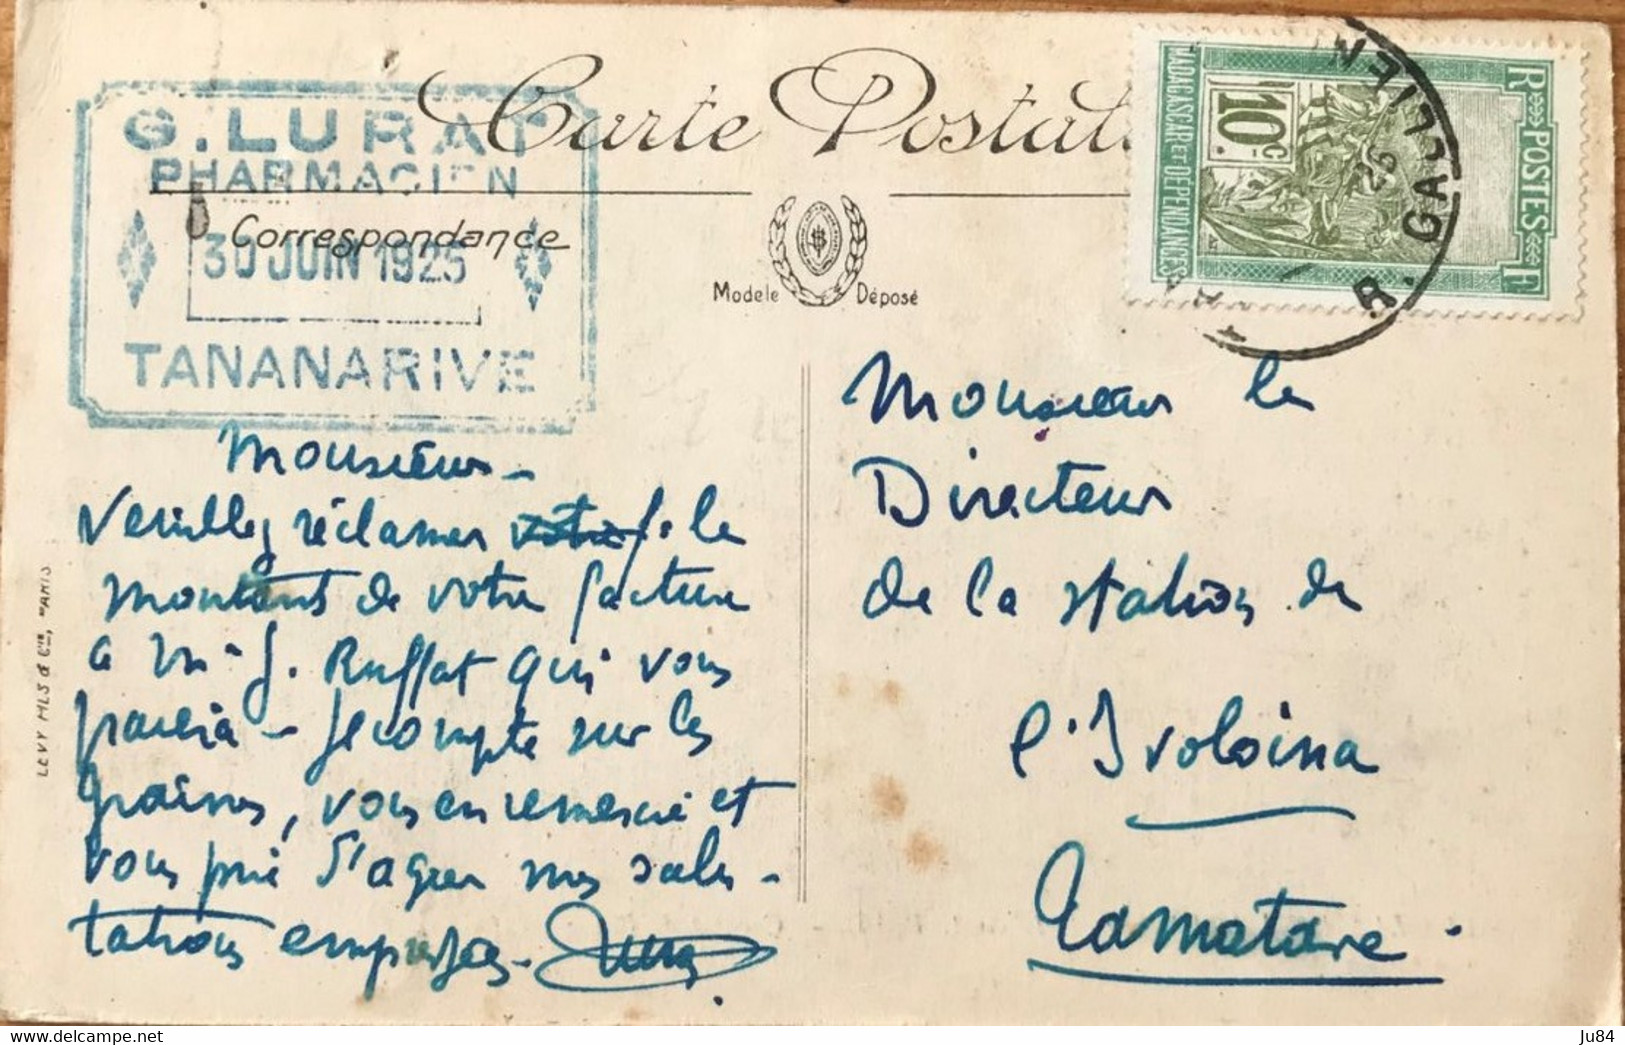 Carte Postale
G. LURAT
PHARMACIEN
Correspondance
30 JUIN 1925
TANANARIVE
Modele Déposé
MADAGASCAR ET DÉPENDANCES
10c
RF
POSTES
R. GALLIENI
Monsieur -
Veuillez réclamer votre le
montant de votre facture
a Mr J. Ruffat qui vous
paiera - Je compte sur les
graines, vous en remercie et
vous prie d'agréer mes salu-
tations empressées -
Monsieur le
Directeur
de la station de
l'Ivoloina
Tamatave.
LEVY FILS & Cie, PARIS
Ju84